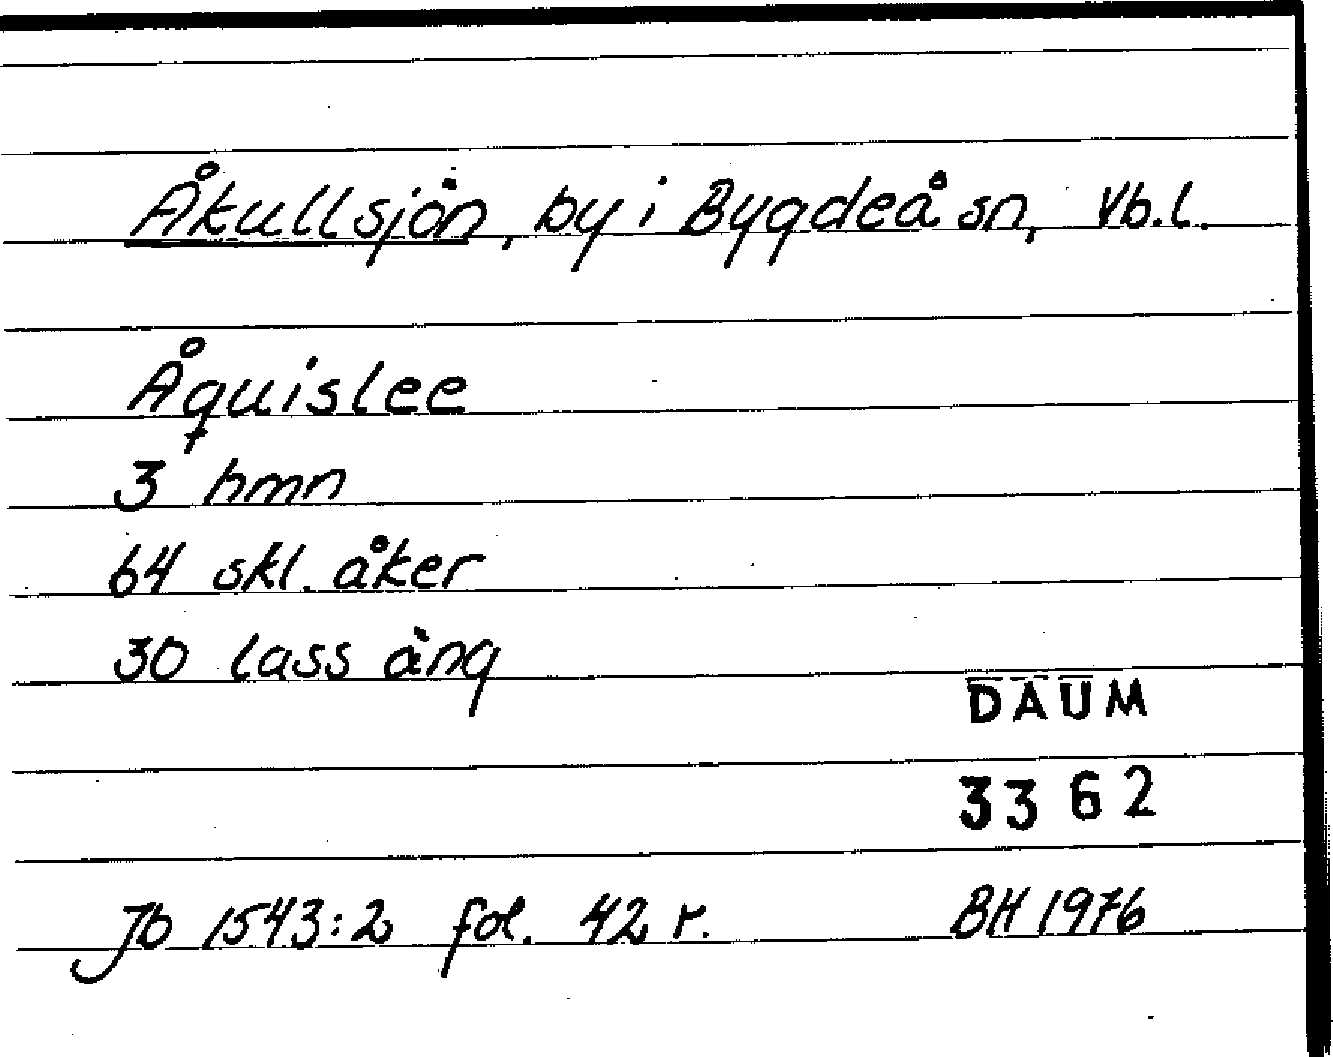 Åkullsjön, by i Bygdeå sn, Vb.l.
Åquislee
3 hmn
64 skl. åker
30 lass äng
DAUM
3362
Jb 1543:2 fol. 42 r. BH 1976